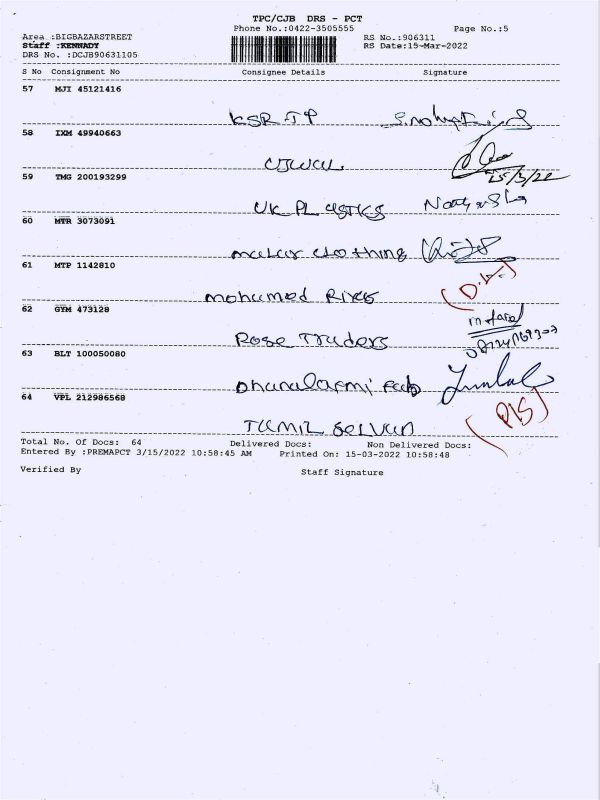 TPC/CJB DRS - PCT
Phone No.:0422-3505555 Page No.:5
Area :BIGBAZARSTREET RS No.:906311
Staff :KENNADY RS Date:15-Mar-2022
DRS No. :DCJB90631105
S No Consignment No Consignee Details Signature
57 MJI 45121416
KSR
58 IXM 49940663
15/3/22
59 TMG 200193299
UK PLASTICS
60 MTR 3073091
clothing
61 MTP 1142810
mohamed
62 GYM 473128
Rose Traders
63 BLT 100050080
64 VPL 212986568
TAMIL SELVAN
Total No. Of Docs: 64 Delivered Docs: Non Delivered Docs:
Entered By :PREMAPCT 3/15/2022 10:58:45 AM Printed On: 15-03-2022 10:58:48
Verified By Staff Signature